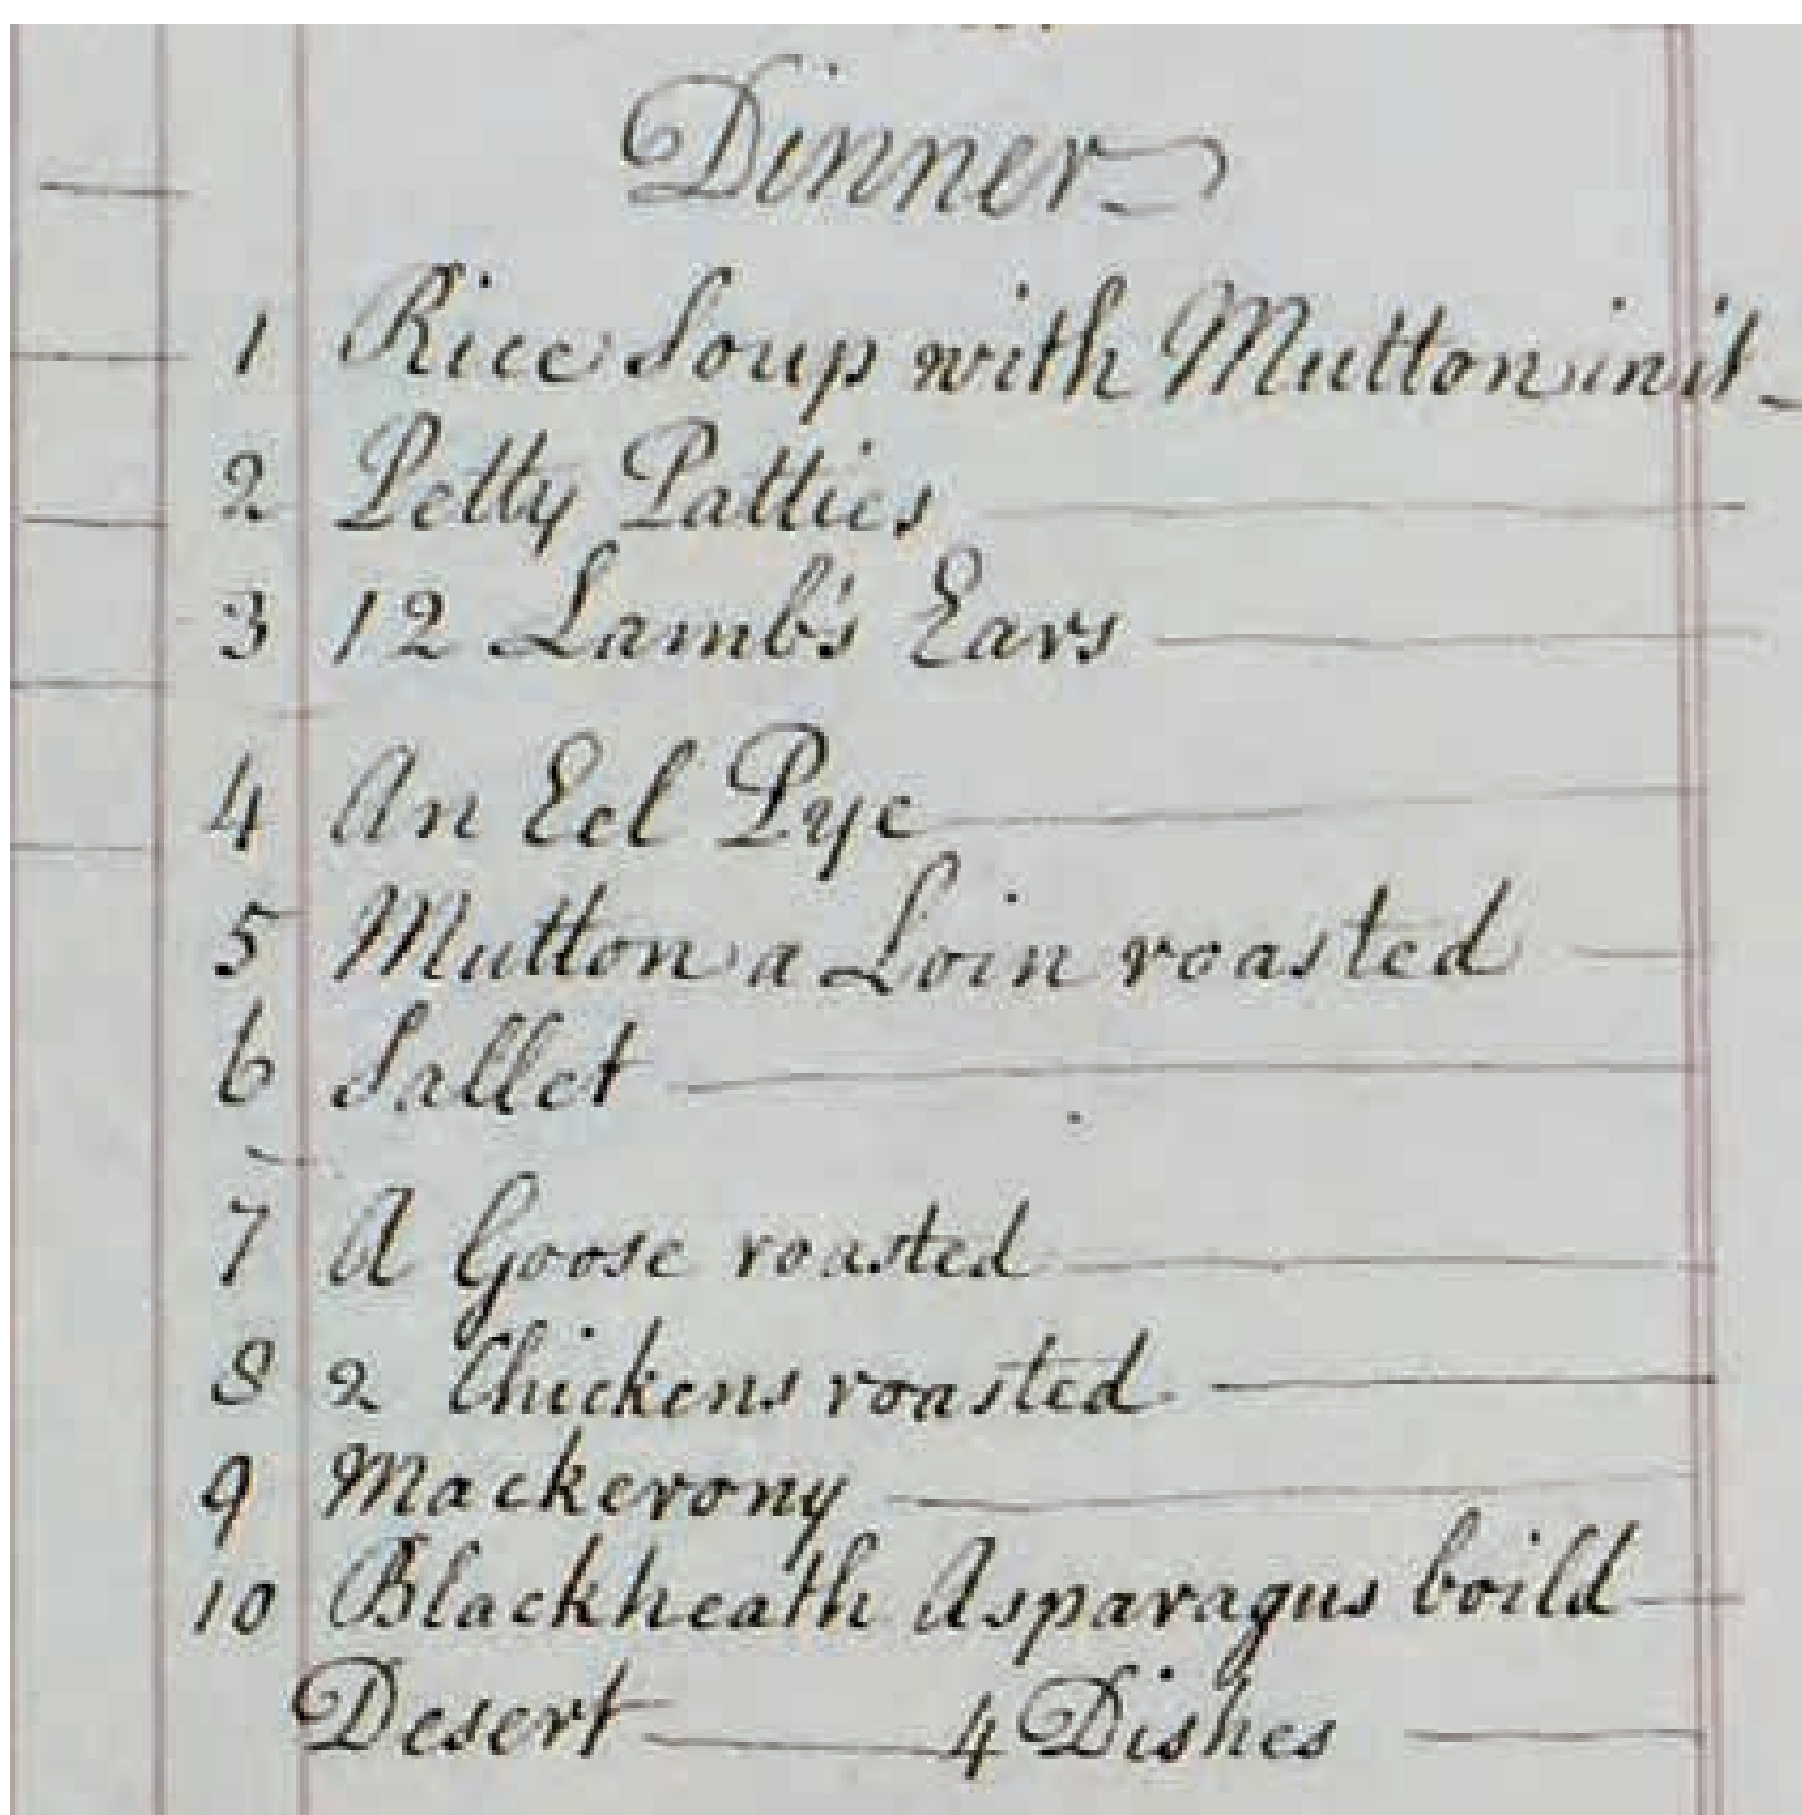 Dinner
1 Rice Soup with Mutton in it
2 Petty Patties
3 12 Lamb's Ears
4 An Eel Pye
5 Mutton a Loin roasted
6 Sallet
7 A Goose roasted
8 2 Chickens roasted
9 Mackerony
10 Blackheath Asparagus boild
Desert 4 Dishes